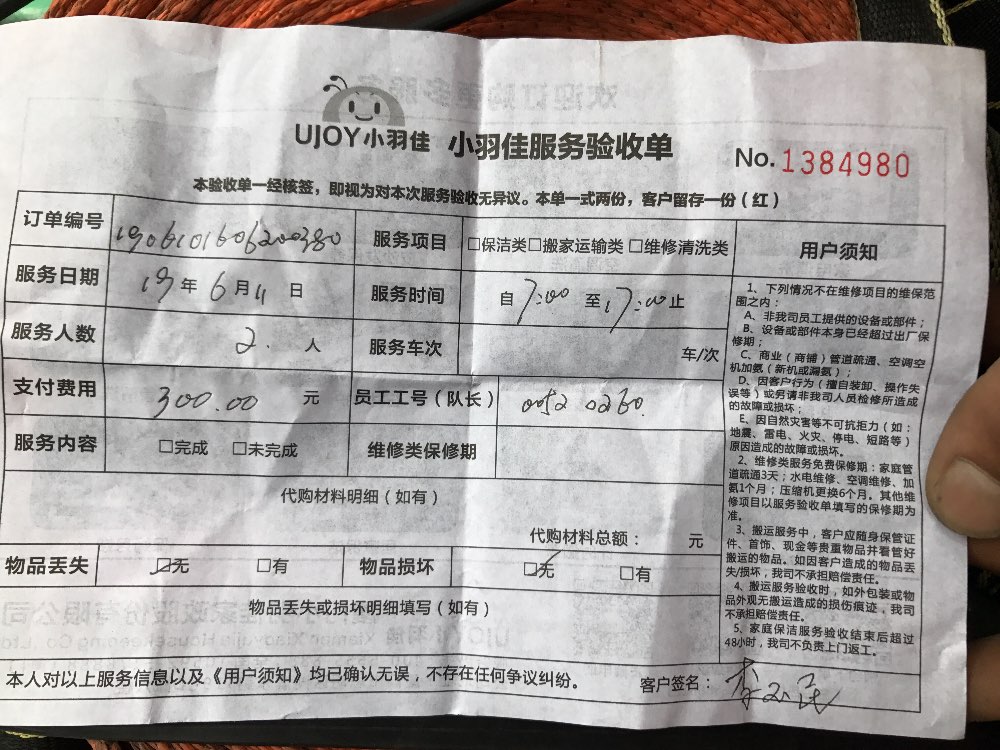 UJOY小羽佳 小羽佳服务验收单
No. 1384980
本验收单一经核签，即视为对本次服务验收无异议。本单一式两份，客户留存一份（红）
订单编号 1906101606200380 服务项目 □保洁类□搬家运输类□维修清洗类
服务日期 19年6月11日 服务时间 自7:00至17:00止
服务人数 2. 人 服务车次 车/次
支付费用 300.00 元 员工工号（队长） 0052 0260.
服务内容 □完成 □未完成 维修类保修期
代购材料明细（如有）
代购材料总额： 元
物品丢失 □无 □有 物品损坏 □无 □有
物品丢失或损坏明细填写（如有）
本人对以上服务信息以及《用户须知》均已确认无误，不存在任何争议纠纷。 客户签名：
用户须知
1、下列情况不在维修项目的维保范
围之内：
A、非我司员工提供的设备或部件；
B、设备或部件本身已经超过出厂保
修期；
C、商业（商铺）管道疏通、空调空
机加氨（新机或漏氨）；
D、因客户行为（擅自装卸、操作失
误等）或另请非我司人员检修所造成
的故障或损坏；
E、因自然灾害等不可抗拒力（如：
地震、雷电、火灾、停电、短路等）
原因造成的故障或损坏。
2、维修类服务免费保修期：家庭管
道疏通3天；水电维修、空调维修、加
氨1个月；压缩机更换6个月。其他维
修项目以服务验收单填写的保修期为
准。
3、搬运服务中，客户应随身保管证
件、首饰、现金等贵重物品并看管好
搬运的物品。如因客户造成的物品丢
失/损坏，我司不承担赔偿责任。
4、搬运服务验收时，如外包装或物
品外观无搬运造成的损伤痕迹，我司
不承担赔偿责任。
5、家庭保洁服务验收结束后超过
48小时，我司不负责上门返工。